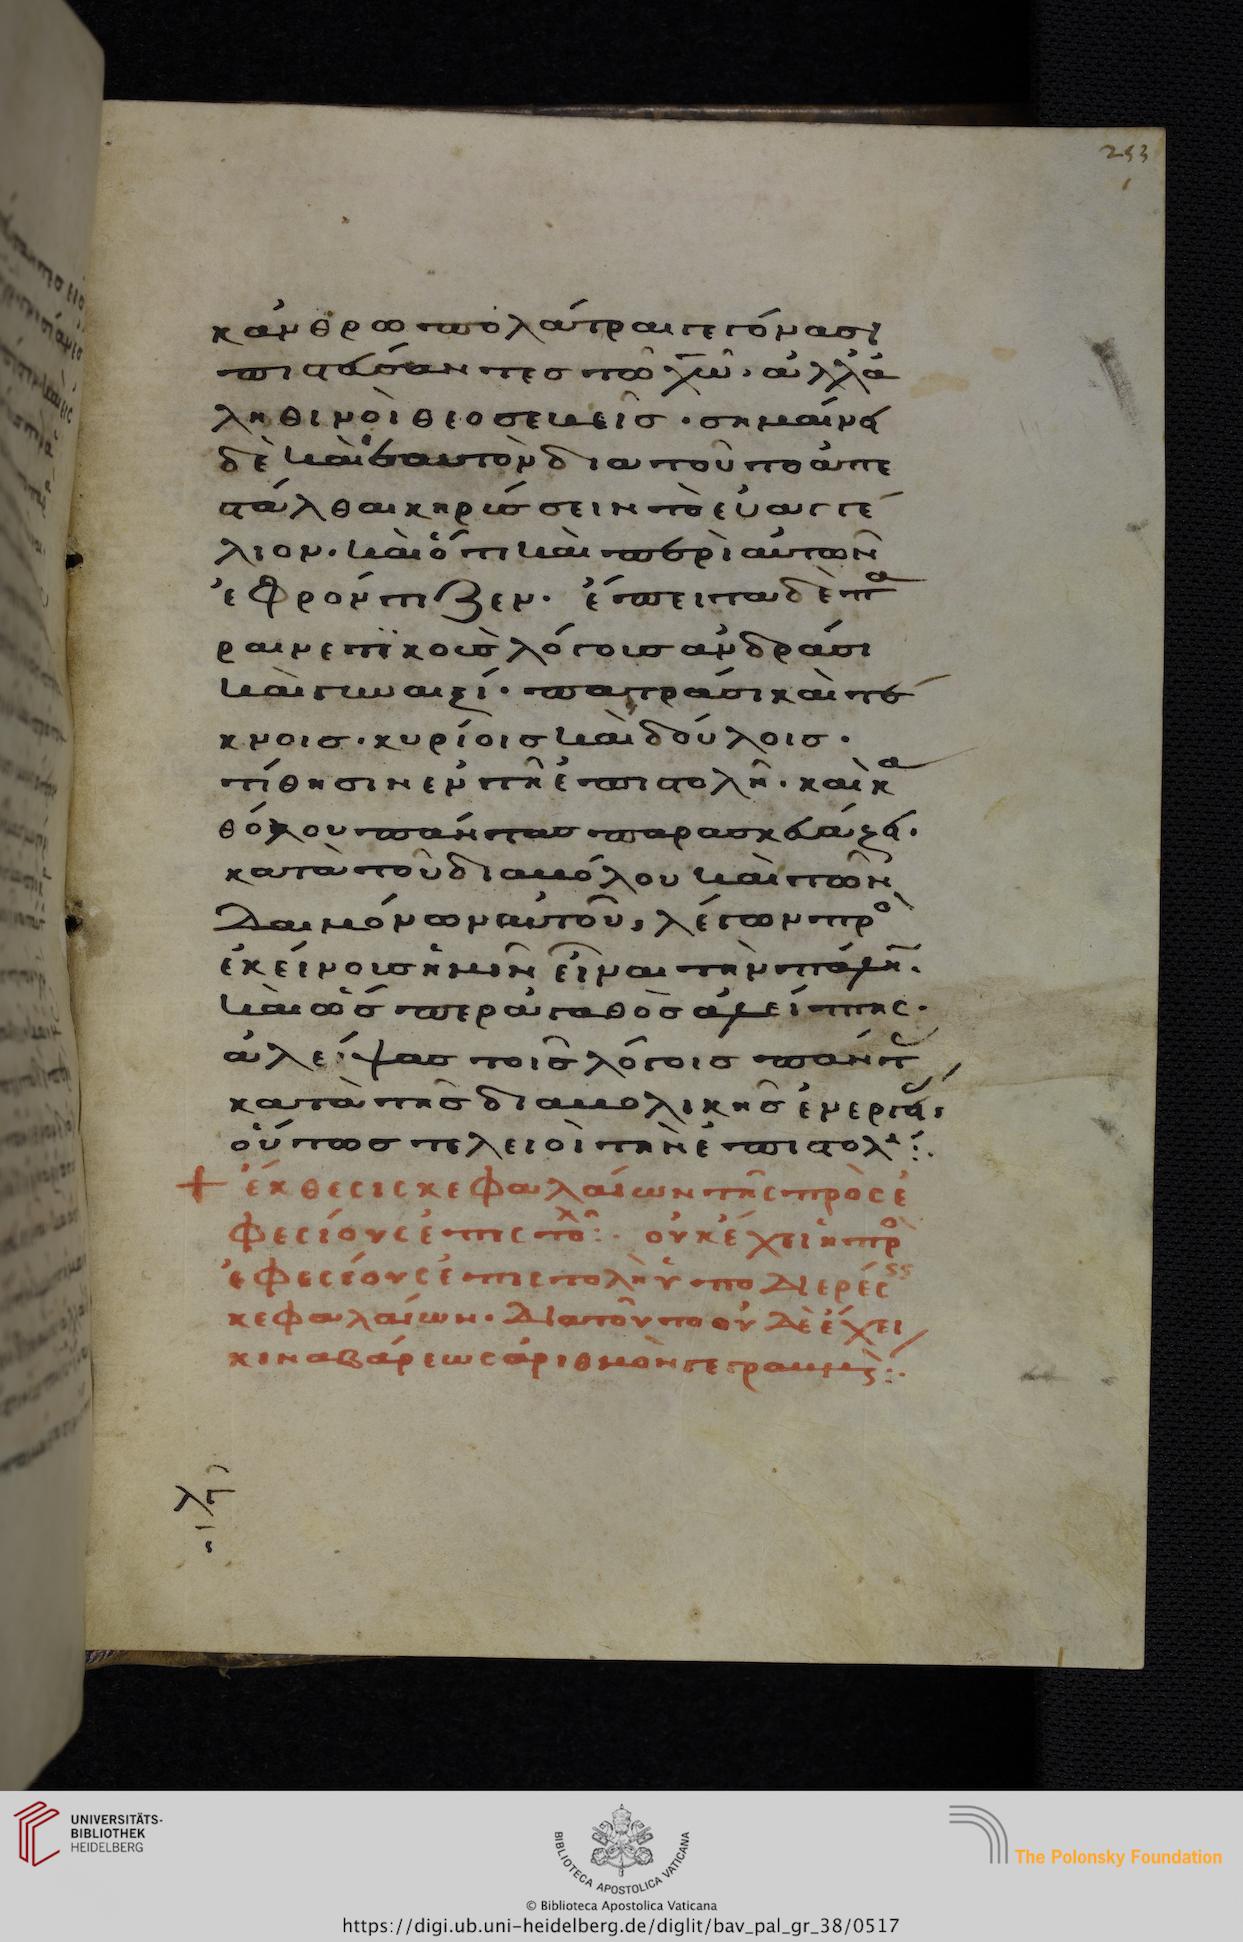 253
κἀνθρωπολάτραι γεγόνασι
πιστεύσαντες τῶ χῶ. ἀλλὰ
ληθινοὶ θεοσεβεῖς. σημαίνει
δὲ καὶ ἑαυτὸν διατοῦτο ἀπε
στάλθαι κηρύσσειν τὸ εὐαγγέ
λιον. καὶ ὅτι καὶ περὶ αὐτῶν
ἐφρόντιζεν. ἔπειτα δὲ πα
ραινετϊκοὺς λόγοις ἀνδράσι
καὶ γυναιξί. πατράσι καὶ τέ
κνοις. κυρίοις καὶ δούλοις.
τίθησιν ἐν τῆ ἐπιστολῆ. καὶ κα
θόλου πάντας παρασκευάζει.
κατὰ τοῦ διαβόλου καὶ τῶν
δαιμόνων αὐτοῦ, λέγων πρὸ
ἐκείνοις ἡμῖν εἶναι τὴν πάλην.
καὶ ὥσπερ ἀγαθὸς ἀλείπτης.
ἀλείψας τοῖς λόγοις πάντ
κατὰ τῆς διαβολικῆς ἐνεργεί
οὕτως τελειοῖ τὴν ἐπιστολ :.
+ ἔκθεσις κεφαλαίων τῆς πρὸς ἐ
φεσίους ἐπιστο :. οὐκ ἔχει ἡ πρ
ἐφεσίους ἐπιστολὴ ὑποδιερέσ
κεφαλαίων. διατοῦτο οὐδὲ ἔχει
κιναβάρεως ἀριθμὸν γεγραμμ :.
UNIVERSITÄTS-
BIBLIOTHEK
HEIDELBERG
BIBLIOTECA APOSTOLICA VATICANA
The Polonsky Foundation
© Biblioteca Apostolica Vaticana
https://digi.ub.uni-heidelberg.de/diglit/bav_pal_gr_38/0517